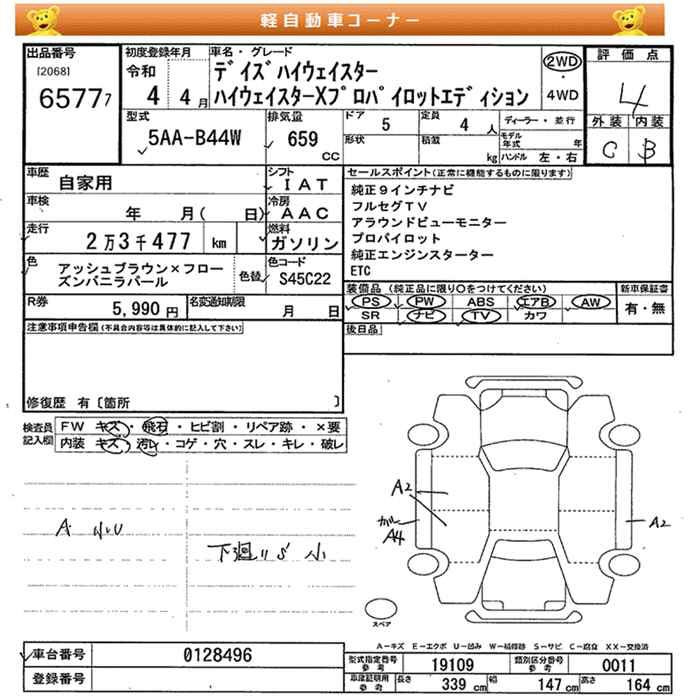 軽自動車コーナー
出品番号 初度登録年月 車名・グレード 評価点
[2068] 令和 デイズハイウェイスター 2WD
65777 4 4月 ハイウェイスターXプロパイロットエディション ・ 4WD 4
型式 排気量 ドア 5 定員 4人 ディーラー・並行 外装 内装
5AA-B44W 659 CC 形状 積載 kg モデル年式 年 C B
ハンドル 左・右
車歴 自家用 シフト IAT セールスポイント(正常に機能するものに限ります)
車検 年 月( 日) 冷房 AAC 純正9インチナビ
フルセグTV
走行 2万3千477 km 燃料 ガソリン アラウンドビューモニター
プロパイロット
色 アッシュブラウン×フロー 色替 色コード 純正エンジンスターター
ズンバニラパール S45C22 ETC
R券 5,990円 名変通知期限 月 日 装備品(純正品に限り○をつけてください) 新車保証書
PS PW ABS エアB AW 有・無
SR ナビ TV カワ
注意事項申告欄(不具合内容等は具体的に記入して下さい) 後日品
修復歴 有〔箇所 〕
検査員 FW キズ・飛石・ヒビ割・リペア跡・×要
記入欄 内装 キズ・汚レ・コゲ・穴・スレ・キレ・破レ
A2
A 小U A4 A2
下廻りS 小
スペア
A-キズ E-エクボ U-凹み W-補修跡 S-サビ C-腐食 XX-交換済
車台番号 0128496 型式指定番号 参考 19109 類別区分番号 参考 0011
登録番号 車庫証明用 参考 長さ 339cm 幅 147cm 高さ 164cm